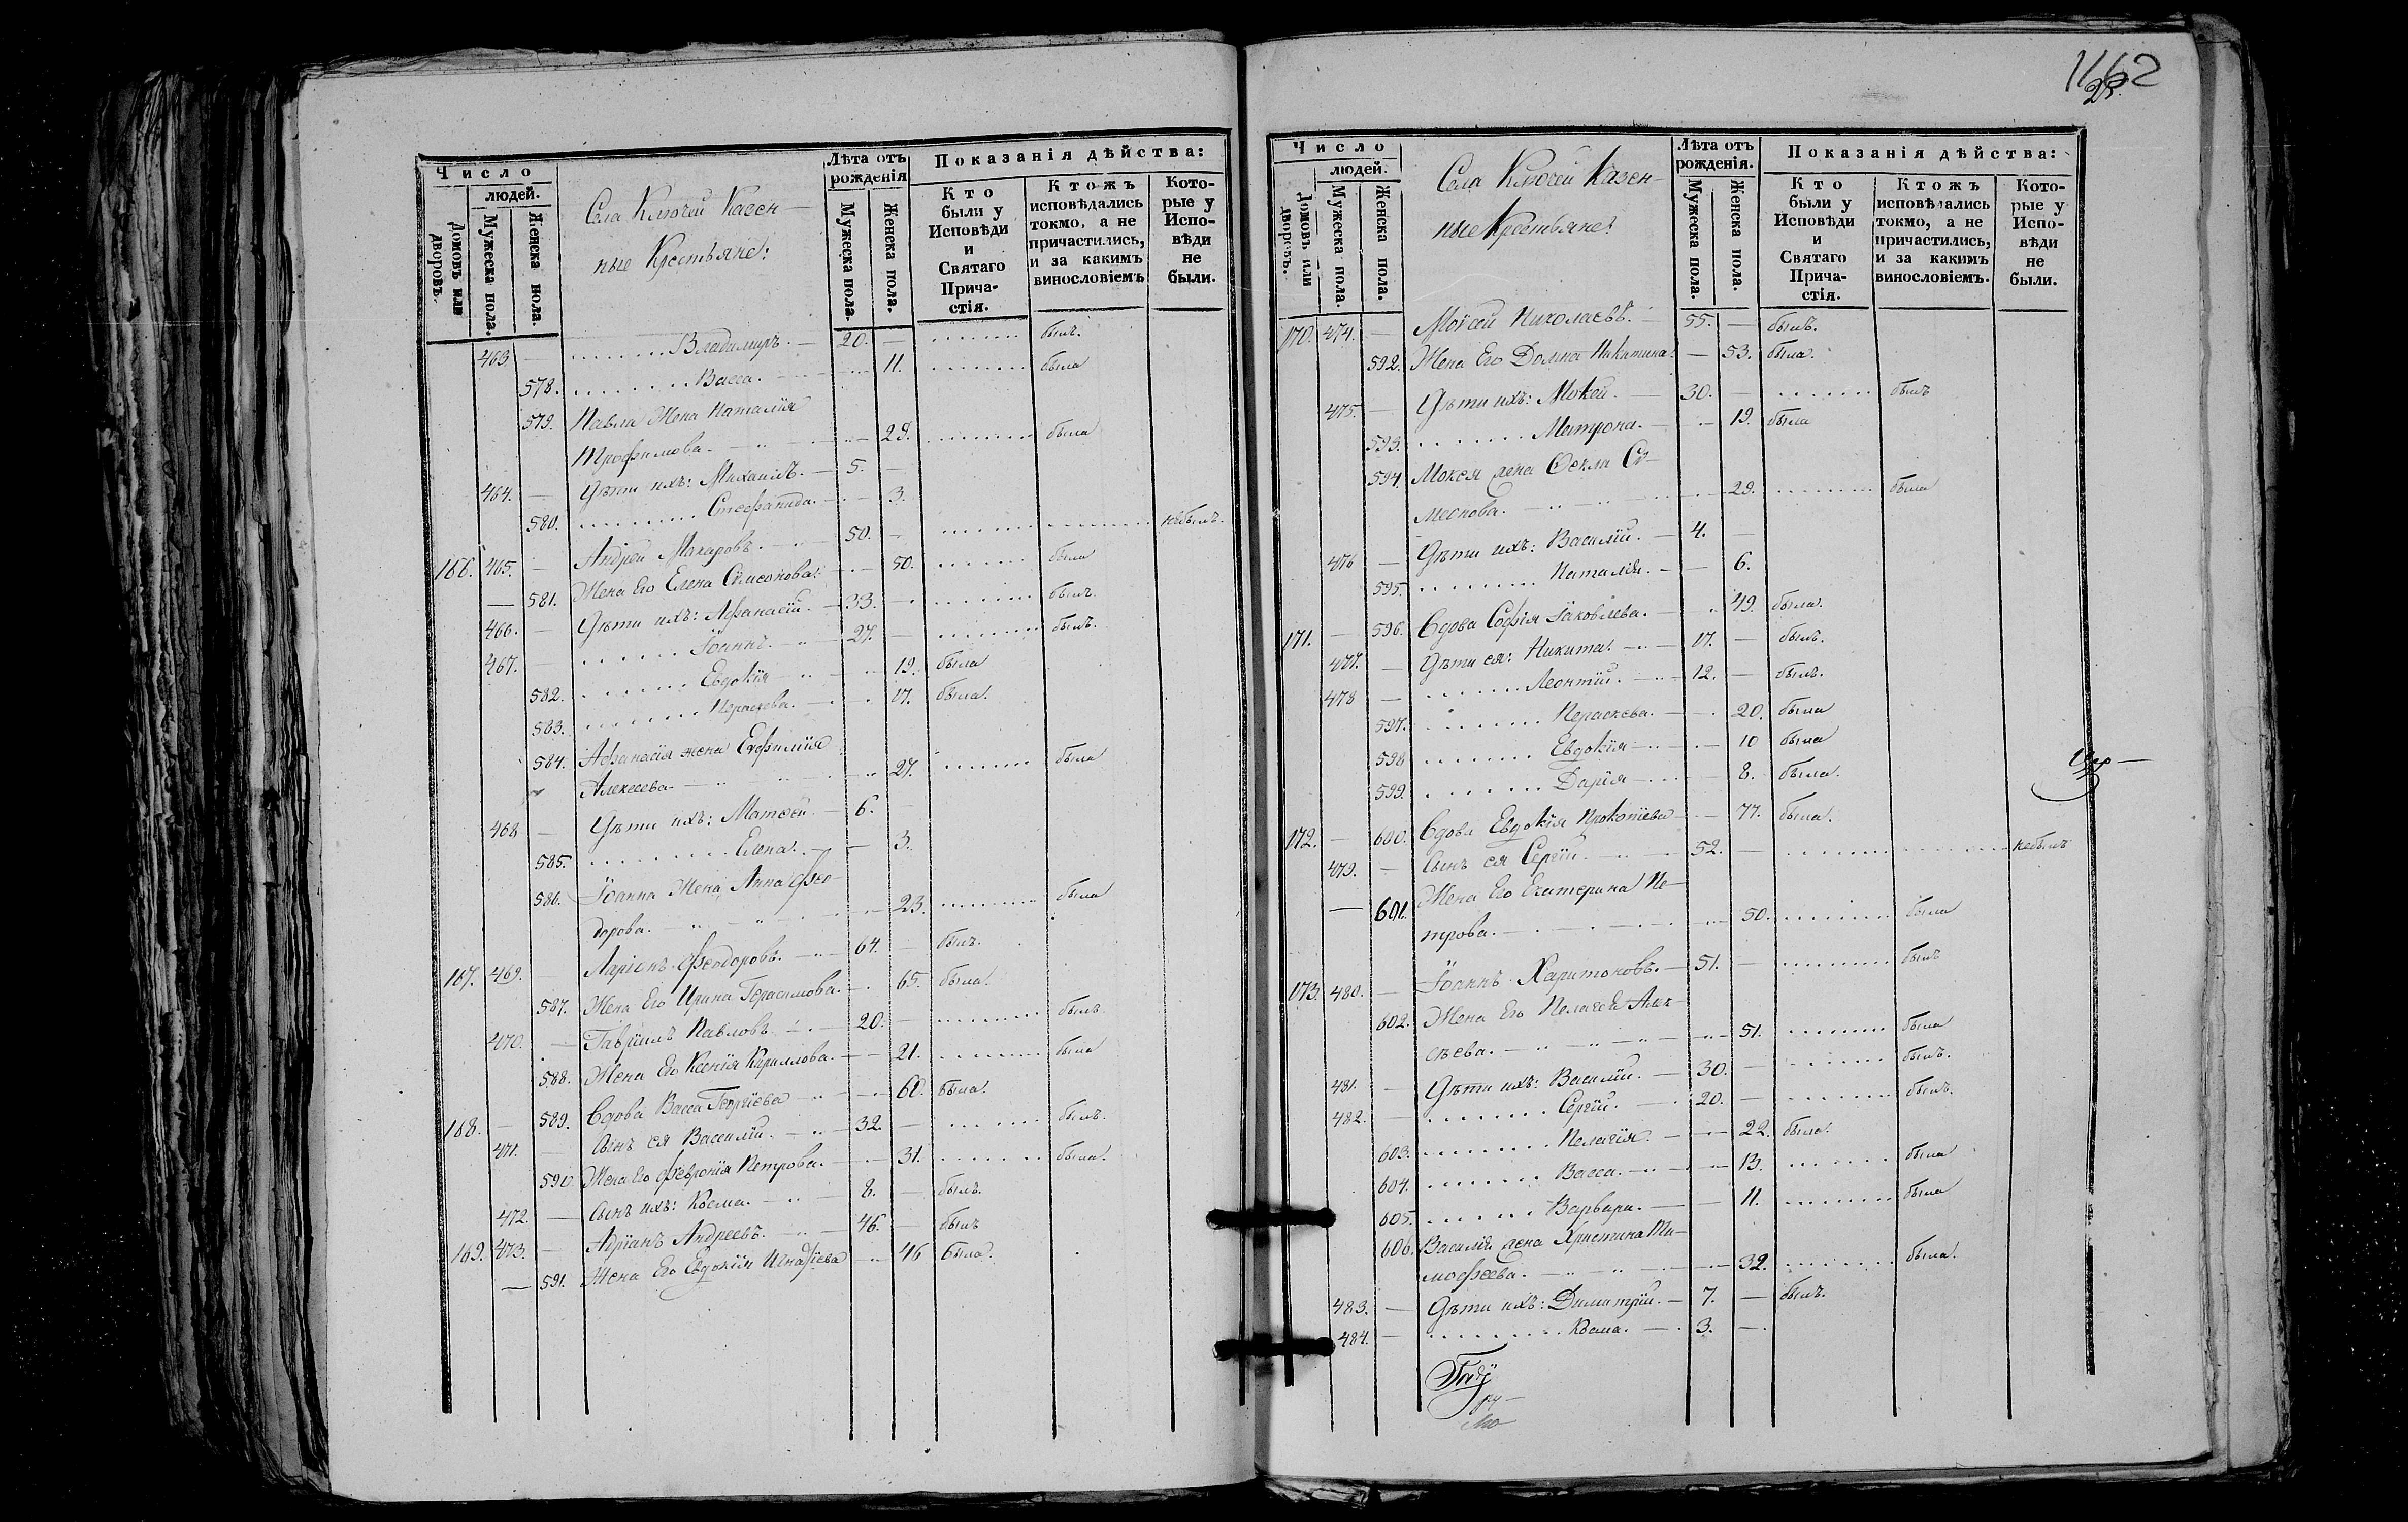 Число
людей.
Домовъ или дворовъ.
Мужеска пола.
Женска пола.
Села Ключей Казен-
ные Крестьяне:
Лѣта отъ рожденія
Мужеска пола.
Женска пола.
Показанія дѣйства:
Кто были у Исповѣди и Святаго Прича-стія.
Ктожъ исповѣдались токмо, а не причастились, и за какимъ винословіемъ
Кото-рые у Испо-вѣди не были.
463. — Владимиръ. — 20. — былъ.
578. Васса. — 11. была
579. Павла Жена Наталія
Трофимова. — 29. была
464. — Дѣти ихъ: Михаилъ. — 5. —
580. Стефанида. — 3.
166. 465. — Андрей Макаровъ. — 50. — небылъ.
— 581. Жена Его Елена Симеонова. — 50. была
466. — Дѣти ихъ: Афанасій. — 33. — былъ.
467. — Іоаннъ. — 27. — былъ.
582. Евдокія — 19. была
583. Параскева. — 17. была.
584. Афанасія жена Евфимія
Алексеева — 27. была
468 — Дѣти ихъ: Матѳей — 6. —
585. Елена. — 3.
586. Іоанна Жена Анна Фео-
дорова. — 23. была
167. 469. — Ларіонъ Феодоровъ. — 64. — былъ.
587. Жена Его Ирина Герасимова. — 65. была.
470. — Гавріилъ Павловъ — 20. — былъ
588. Жена Его Ксенія Кириллова. — 21. была
168. — 589. Вдова Васса Георгіева — 60. была.
471. — Сынъ ея Василій. — 32. — былъ.
590. Жена Его Февронія Петрова. — 31. была.
472. — Сынъ ихъ: Косма. — 8. — былъ.
169. 473. — Адріанъ Андреевъ. — 46. — былъ
— 591. Жена Его Евдокія Игнатіева — 46 была.
1662
25.
Число
людей.
Домовъ или дворовъ.
Мужеска пола.
Женска пола.
Села Ключей Казен-
ные Крестьяне:
Лѣта отъ рожденія.
Мужеска пола.
Женска пола.
Показанія дѣйства:
Кто были у Исповѣди и Святаго Прича-стія.
Ктожъ исповѣдались токмо, а не причастились, и за какимъ винословіемъ.
Кото-рые у Испо-вѣди не были.
170. 474. — Моисей Николаевъ. — 55. — былъ.
592. Жена Его Домна Никитина. — 53. была.
475. — Дѣти ихъ: Мокей. — 30. — былъ
593. Матрона. — 19. была
594. Мокея жена Фекла Си-
меонова. — 29. была
476 — Дѣти ихъ: Василій. — 4. —
595. Наталія. — 6.
171. — 596. Вдова Софія Іаковлева. — 49. была.
477. — Дѣти ея: Никита. — 17. — былъ.
478 — Леонтій. — 12. — былъ.
597. Параскева. — 20. была
598 Евдокія — 10 была
599. Дарія — 8. была.
172. — 600. Вдова Евдокія Прокопіева — 77. была.
479. — Сынъ ея Сергій. — 52. — небылъ
— 601. Жена Его Екатерина Пе-
трова. — 50. была
173. 480. — Іоаннъ Харитоновъ. — 51. — былъ
602. Жена Его Пелагея Але-
ѯеева. — 51. была
481. — Дѣти ихъ: Василій. — 30. — былъ.
482. — Сергій. — 20. — былъ.
603. Пелагія. — 22. была.
604. Васса. — 13. была
605. Варвара. — 11. была
606. Василія жена Христина Ти-
мофеева. — 32. была.
483. — Дѣти ихъ: Димитрій. — 7. — былъ.
484. — Косма. — 3. —